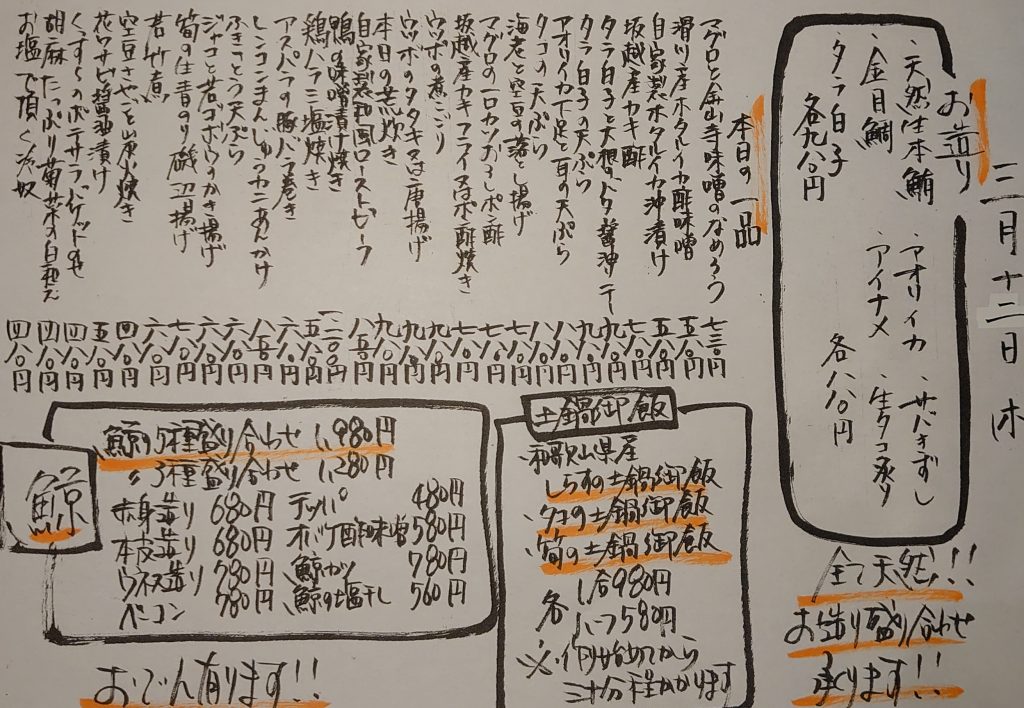 三月十二日 木
お造り
・天然生本鮪
・金目鯛
・タラ白子
各九八〇円
・アオリイカ
・アイナメ
・サバきずし
・生タコ炙り
各八八〇円
全て天然!!
お造り盛り合わせ
承ります!!
本日の一品
マグロと金山寺味噌のなめろう 七三〇円
滑川産ホタルイカ酢味噌
自家製ホタルイカ沖漬け
坂越産カキ酢
タラ白子と大根のバタ醤油ソテー
タラ白子の天ぷら
アオリイカ下足と耳の天ぷら
タコの天ぷら
海老と空豆の落とし揚げ
マグロの一口カツおろしポン酢
坂越産カキフライ又はポン酢焼き
ウツボの煮こごり
ウツボのタタキ又は唐揚げ
本日の荒炊き
自家製和風ローストビーフ
鴨の味噌漬け焼き
鶏ハラミ塩焼き
アスパラの豚バラ巻き
レンコンまんじゅうカニあんかけ
ふきのとう天ぷら
ジャコと若ゴボウのかき揚げ
筍の生青のり磯辺揚げ
若竹煮
空豆さやごと炭火焼き
花ワサビ醤油漬け
くずし ポテサラ バゲットのせ
胡麻たっぷり菊菜の白和え
お塩で頂く冷奴 四八〇円
土鍋御飯
・和歌山県産
しらすの土鍋御飯
・タコの土鍋御飯
・筍の土鍋御飯
各 1合980円
1ハーフ580円
※作り始めてから
三十分程かかります
鯨
・鯨の5種盛り合わせ 1,980円
・〃3種盛り合わせ 1,280円
・赤身造り 680円
・本皮造り 680円
・ウネス造り 780円
・ベーコン 780円
・テッパ 480円
・オバケ酢味噌 580円
・鯨カツ 780円
・鯨の塩干し 560円
おでん有ります!!